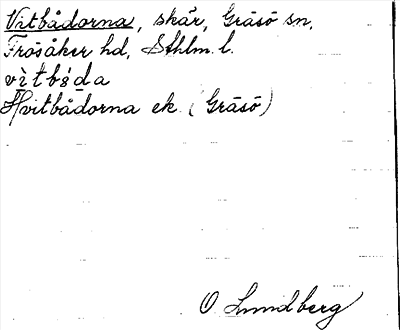 Vitbådorna, skär, Gräsö sn,
Frösåker hd, Sthlm. l.
Hvitbådorna ek. (Gräsö)
O. Lundberg